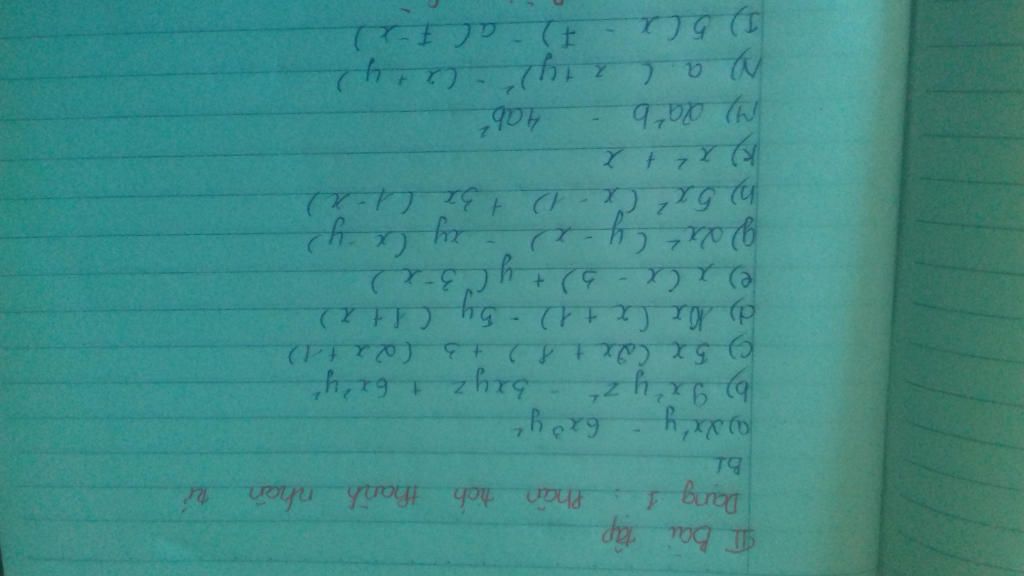 II Bài tập
Dạng 1 : Phân tích thành nhân tử
B1
a) 2x²y - 6x³y²
b) 9x²y²z² - 3xyz + 6x²y²
c) 5x (2x + 1) + 3 (2x + 1)
d) 10x (x + 1) - 5y (1 + x)
e) x (x - 3) + y (3 - x)
g) 2x² (y - x) - xy (x - y)
h) 5x² (x - 1) + 3x (1 - x)
k) x² + x
M) 2a²b - 4ab²
N) a. (x + y)² - (x + y)
I) 5 (x - 7) - a (7 - x)